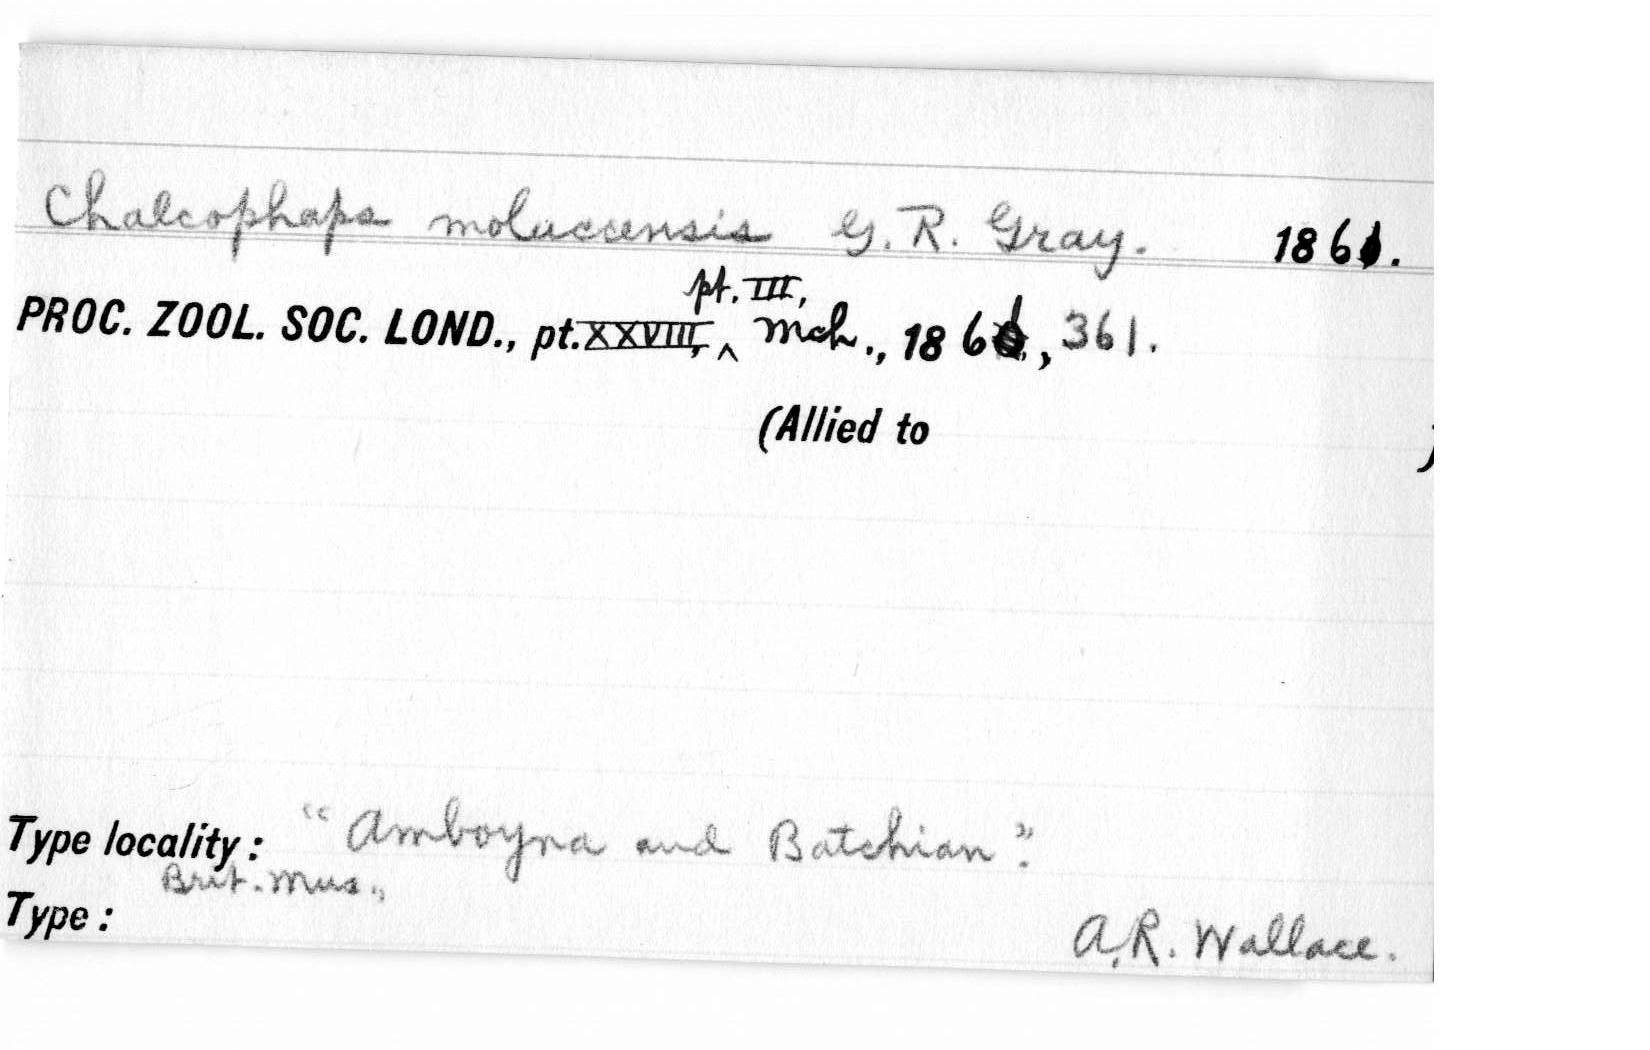 Chalcophaps moluccensis G. R. Gray. 1861.
pt. III,
PROC. ZOOL. SOC. LOND., pt. XXVIII, ^ Mch., 1861, 361.
(Allied to )
Type locality: "Amboyna and Batchian".
Brit. Mus.,
Type: A. R. Wallace.